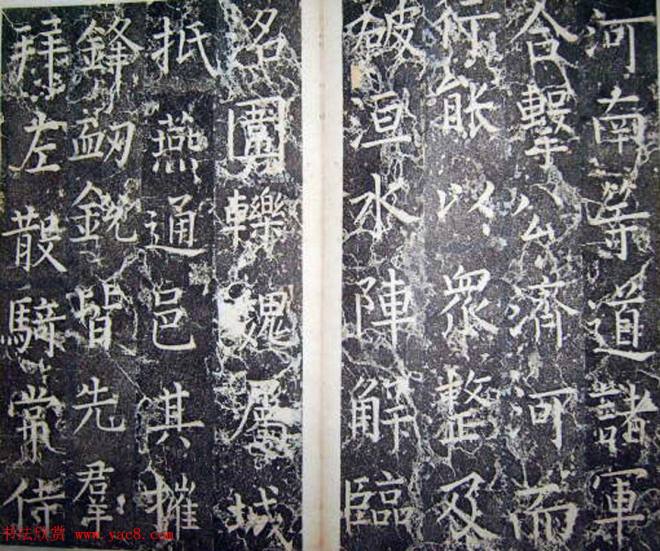 河南等道諸軍
合擊公濟河而
行能以衆整及
破洹水陣解臨
洺圍轢魏屬城
抵燕通邑其摧
鋒衂銳皆先羣
拜左散騎常侍
书法欣赏 www.yac8.com